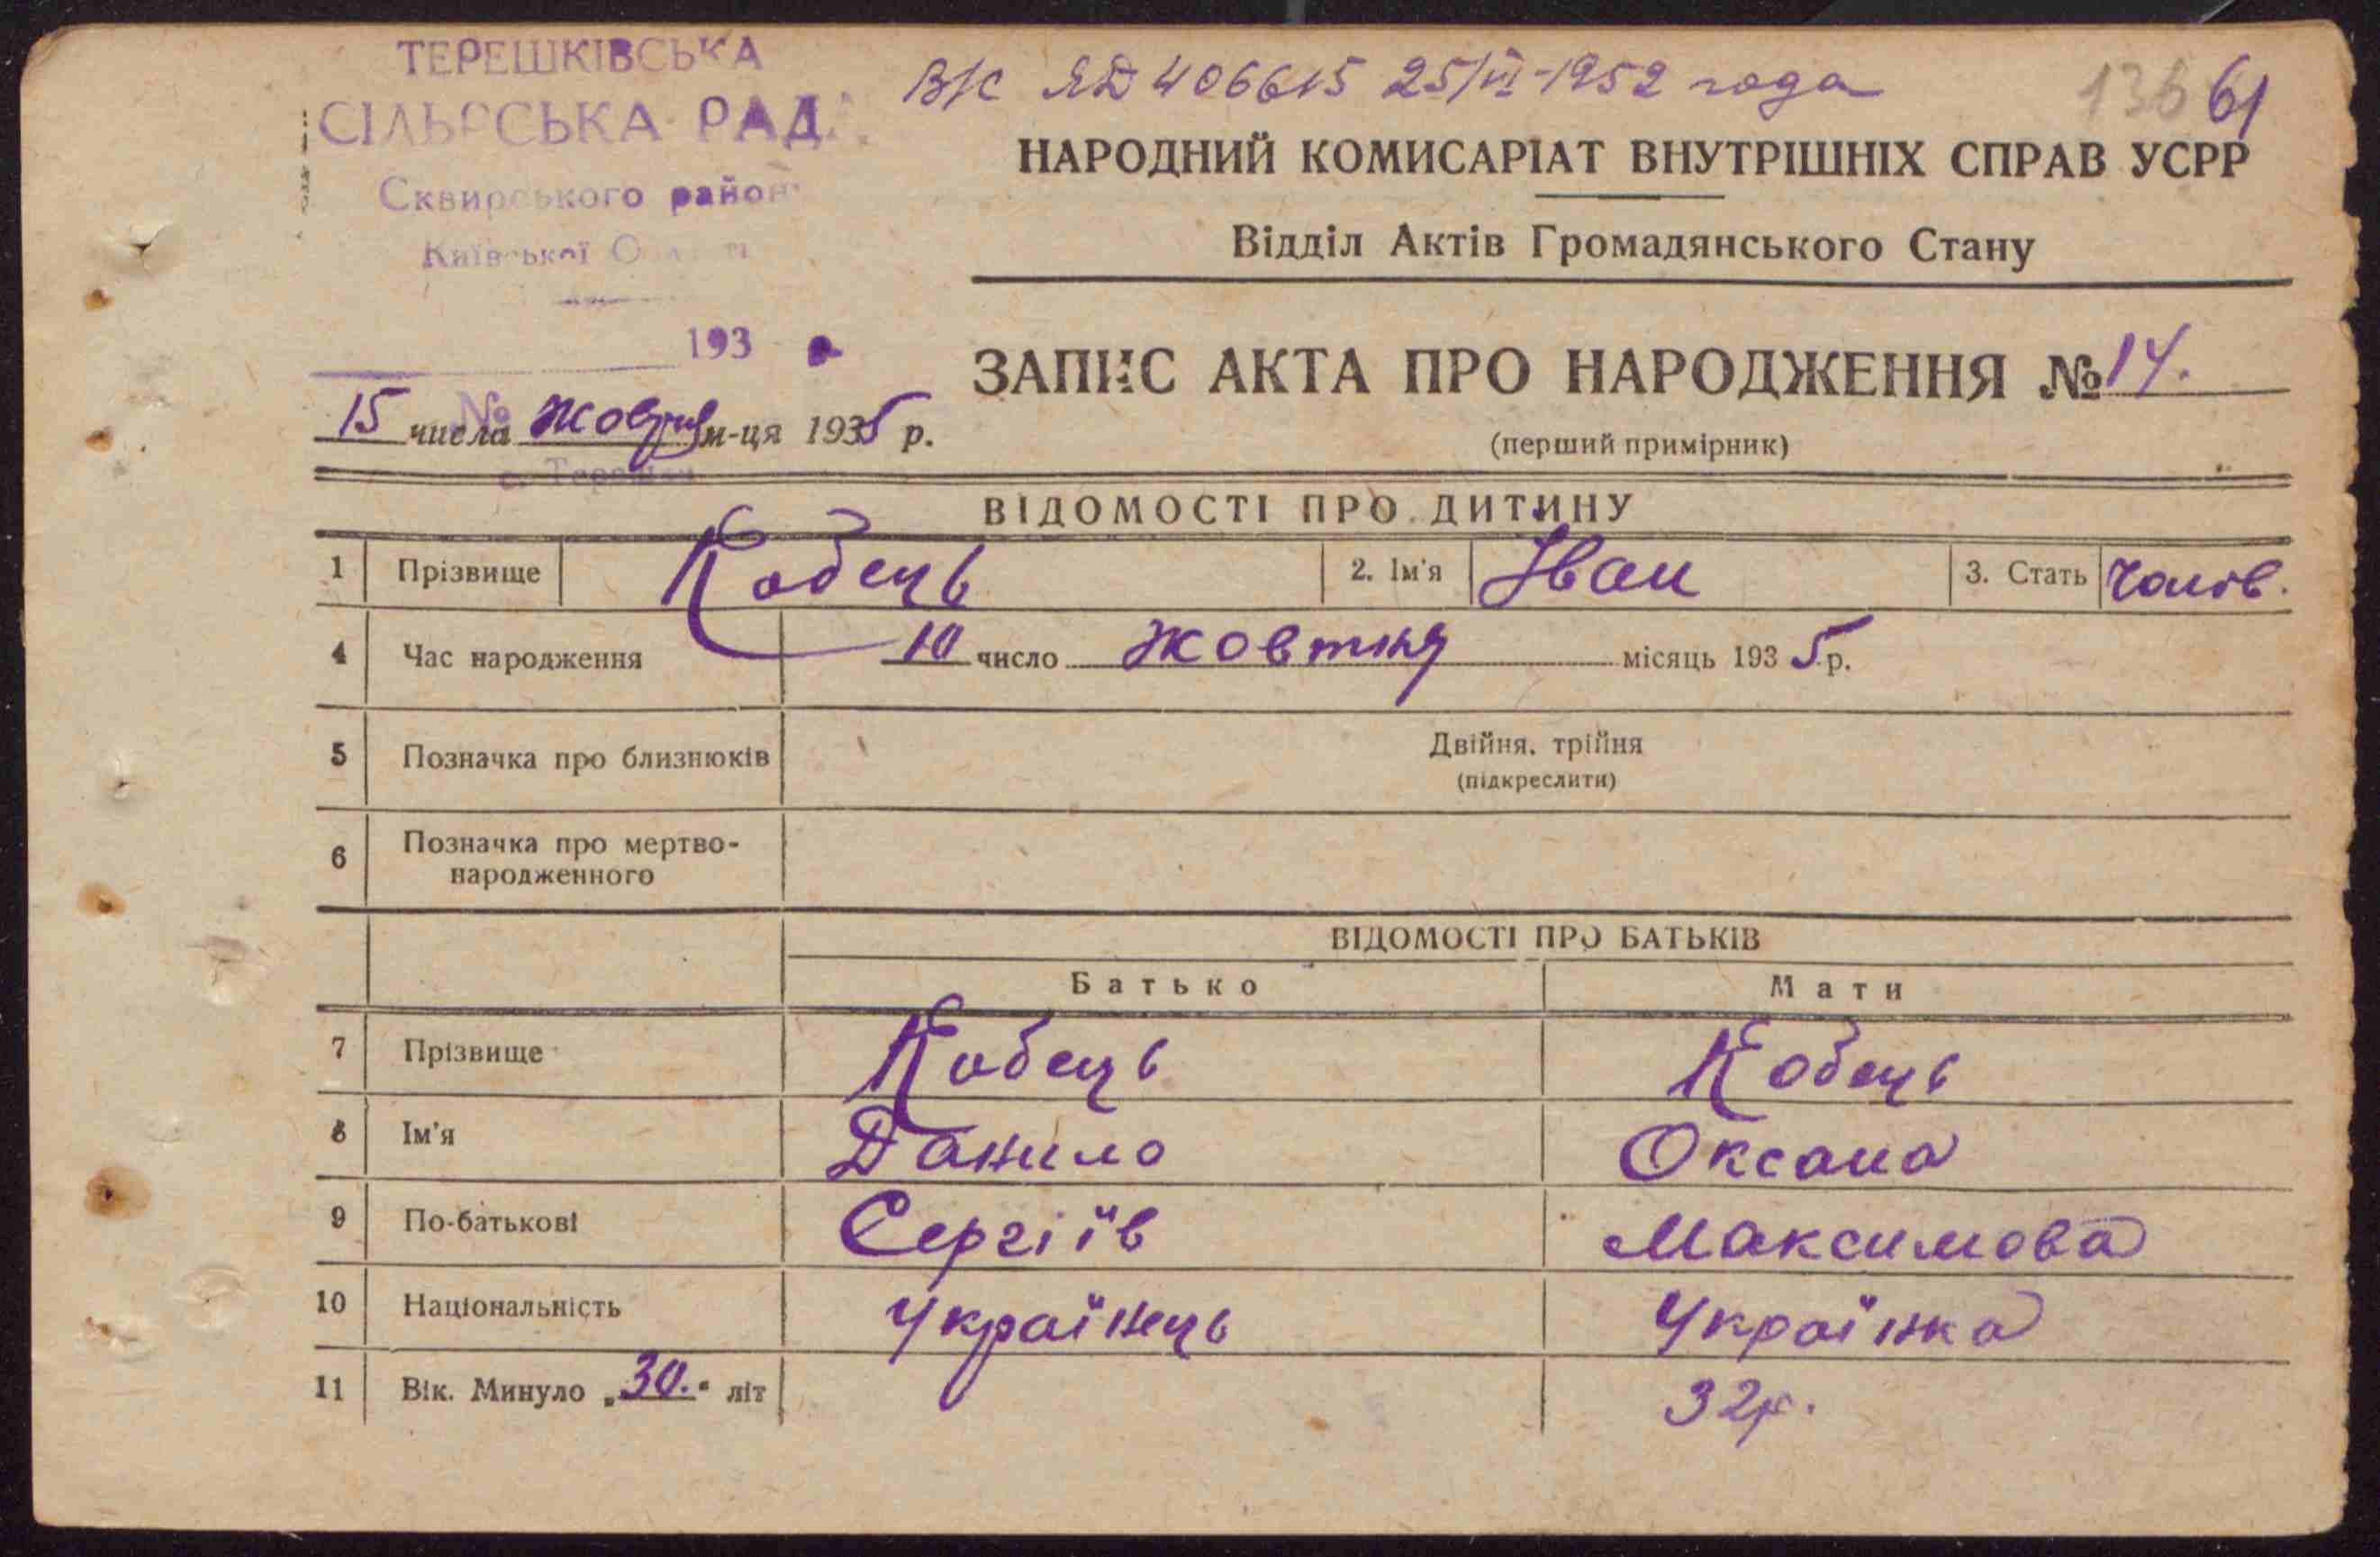 ТЕРЕШКІВСЬКА
СІЛЬРСЬКА РАДА
Сквирського району
Київської Області
193
№
с. Терешки
в/с ЯД 406615 25/VI-1952 года
136 61
НАРОДНИЙ КОМИСАРІАТ ВНУТРІШНІХ СПРАВ УСРР
Відділ Актів Громадянського Стану
ЗАПИС АКТА ПРО НАРОДЖЕННЯ № 14.
15 числа жовтня м-ця 1935 р.
(перший примірник)
ВІДОМОСТІ ПРО ДИТИНУ
1 Прізвище Кобець 2. Ім'я Іван 3. Стать чолов.
4 Час народження 10 число жовтня місяць 1935 р.
5 Позначка про близнюків Двійня, трійня
(підкреслити)
6 Позначка про мертво-
народженного
ВІДОМОСТІ ПРО БАТЬКІВ
Батько Мати
7 Прізвище Кобець Кобець
8 Ім'я Данило Оксана
9 По-батькові Сергіїв Максимова
10 Національність Українець Українка
11 Вік. Минуло „30." літ 32р.